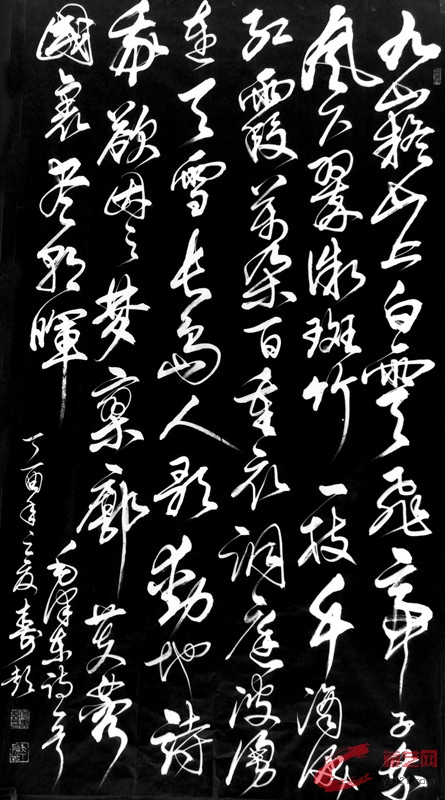 九嶷山上白雲飛帝子乘
風下翠微斑竹一枝千滴淚
紅霞萬朵百重衣洞庭波湧
連天雪長島人歌動地詩
我欲因之夢寥廓芙蓉
國裏盡朝暉
毛澤東詩一首
丁酉年之夏壽彭